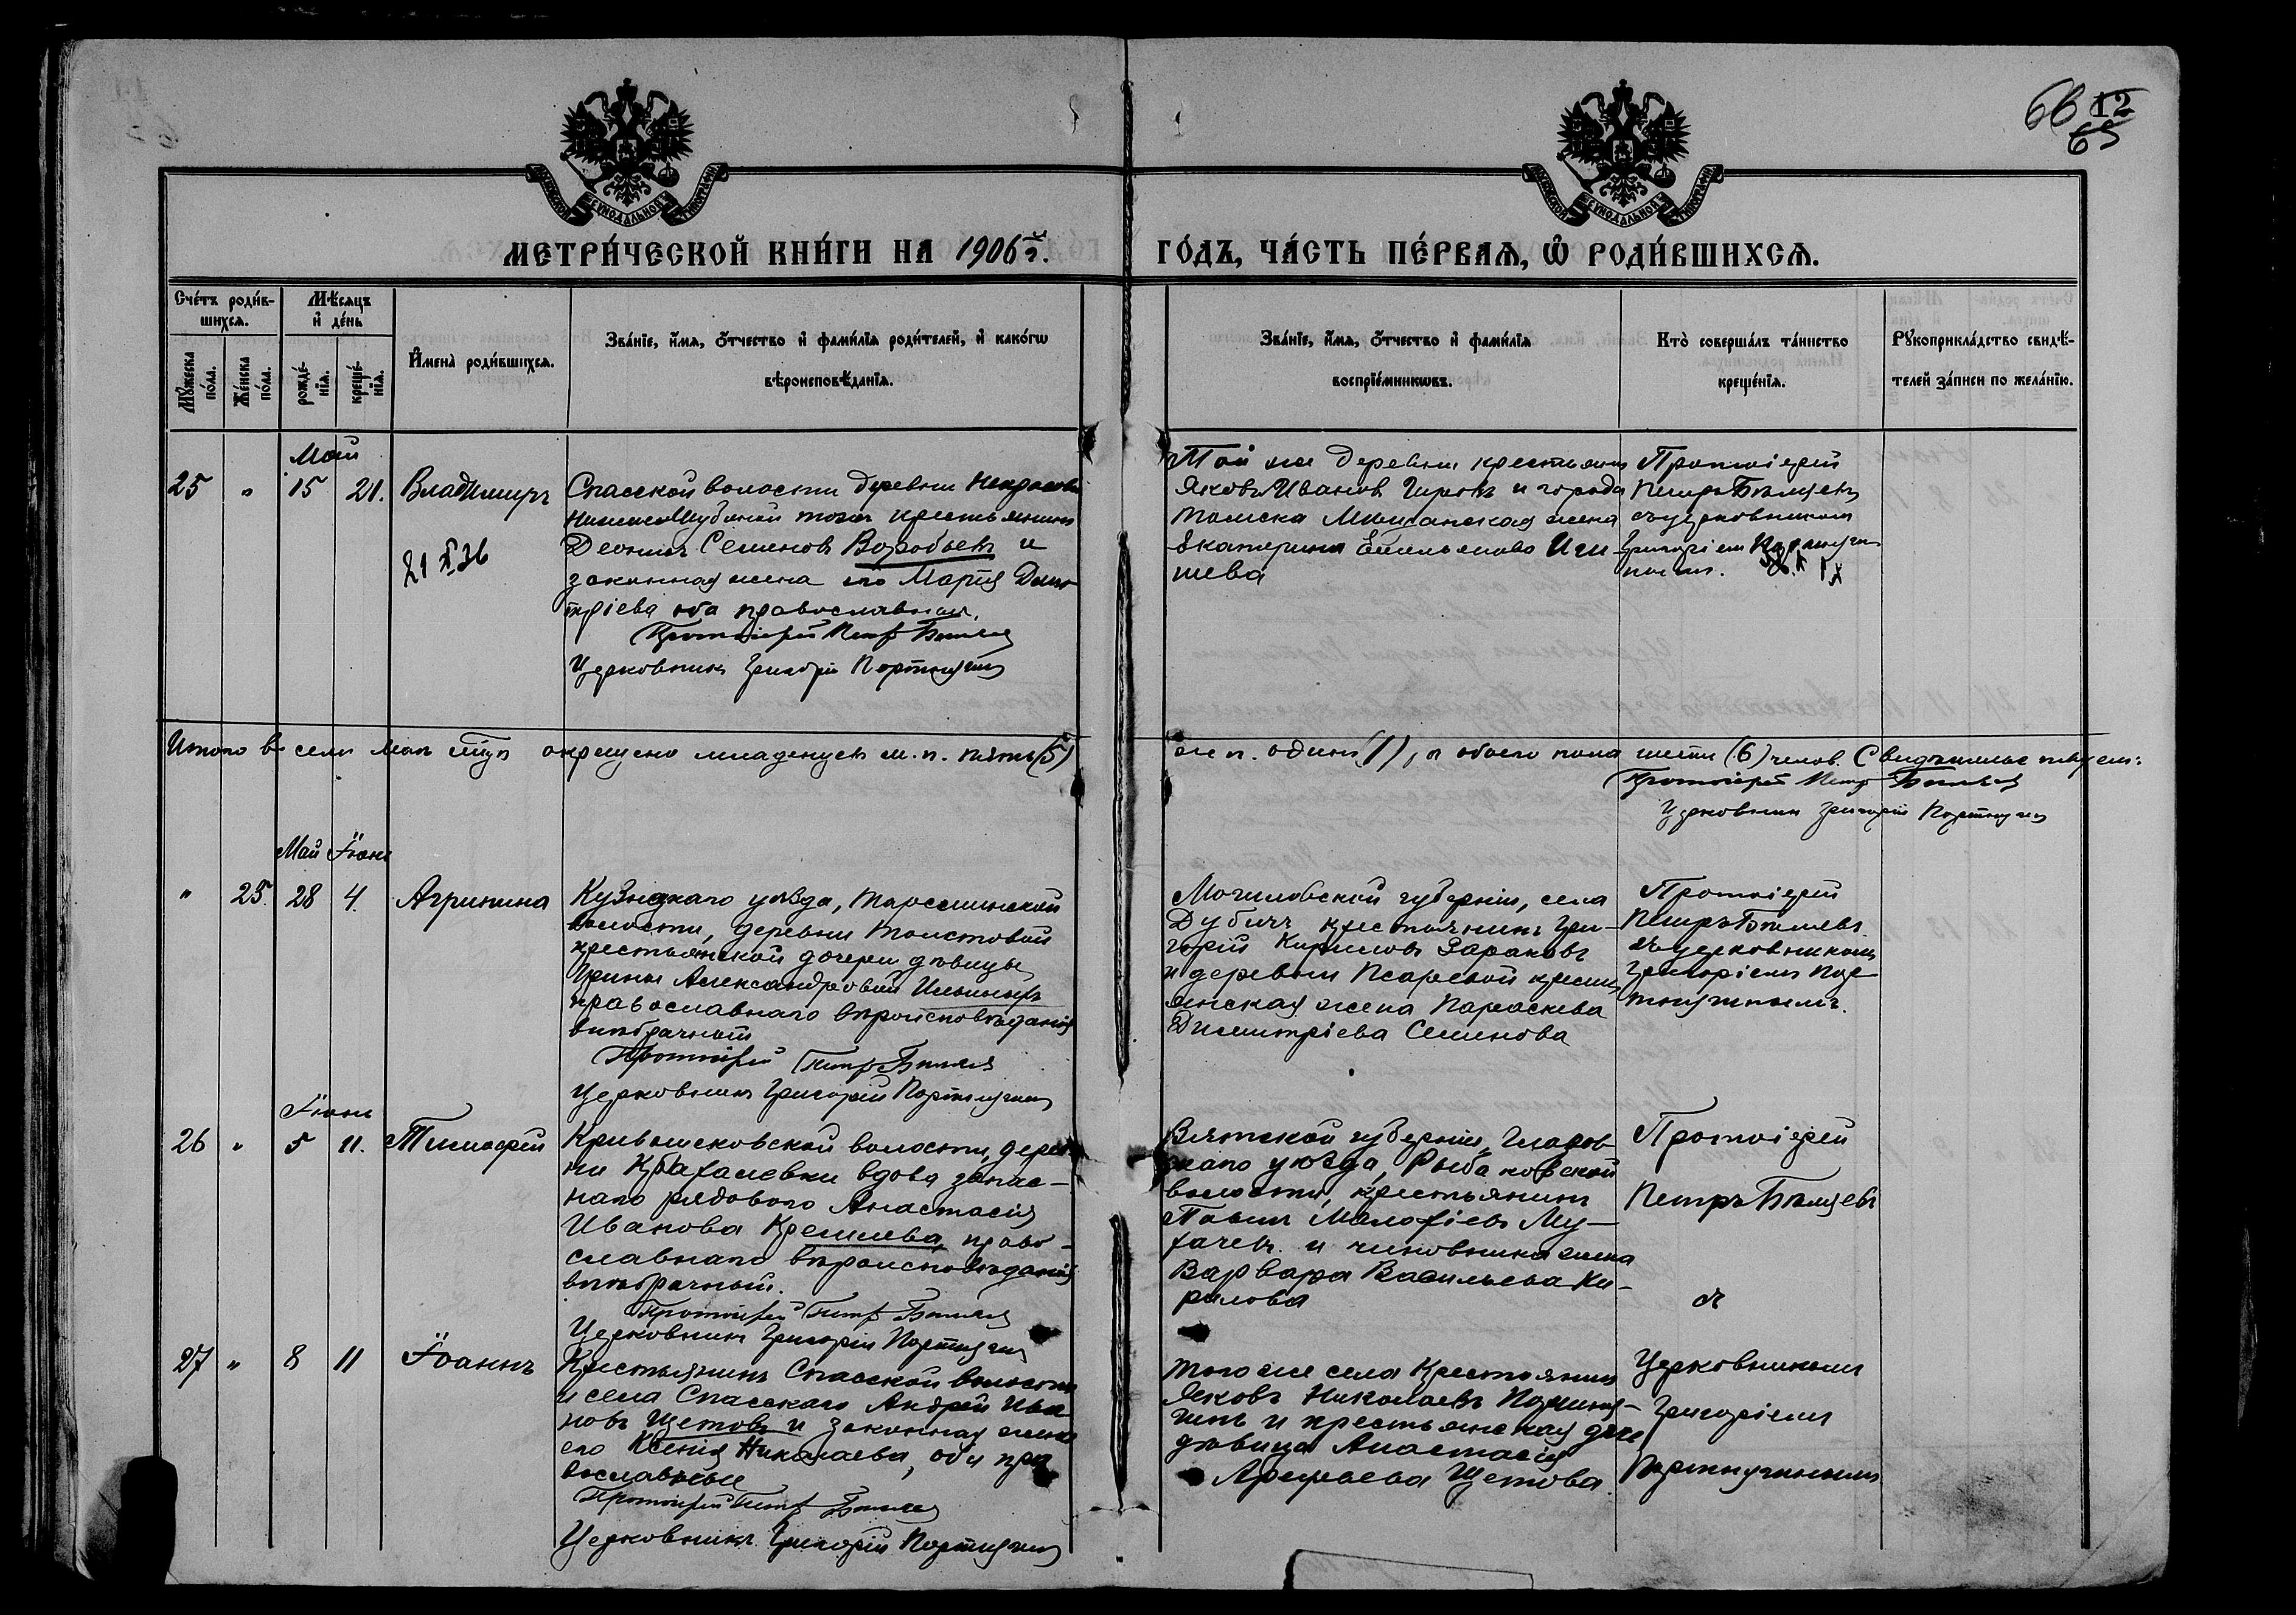 66 12
65
МЕТРИ́ЧЕСКОЙ КНИ́ГИ НА 1906 г. ГО́ДЪ, ЧА́СТЬ ПЕ́РВАѦ, Ѡ҆ РОДИ́ВШИХСѦ.
Сче́тъ роди́в-
шихсѧ.
Мѣ́сѧцъ
и҆ де́нь
Мꙋ́жеска
по́ла.
Же́нска
по́ла.
рожде́-
нїѧ.
креще́-
нїѧ.
И҆мена̀ роди́вшихсѧ.
Зва́нїе, и҆́мѧ, ѻ҆́тчество и҆ фами́лїѧ роди́телей, и҆ како́гѡ
вѣроисповѣ́данїѧ.
Зва́нїе, и҆́мѧ, ѻ҆́тчество и҆ фами́лїѧ
воспрїе́мникѡвъ.
Кто̀ соверша́лъ та́инство
креще́нїѧ.
Рꙋкоприкла́дство свидѣ́-
телей за́писи по жела́нїю.
Май
25 " 15 21. Владимиръ
21 X 36
Спасской волости деревни
крестьянинъ
Семеновъ Воробьевъ и
законная жена его Марія Дими-
тріева оба православные.
Протоіерей Петръ
Церковникъ Григорій Портнягин
Той же деревни крестьянин
Яковъ Ивановъ и города
Томска Мѣщанская жена
Екатерина Емельянова
шева
Протоіерей
Петръ
съ церковником
Григоріем
Итого в мая мѣсяц окрещено младенцев м. п. пять (5)
ж. п. один (1), а обоего пола шесть (6) челов. Свидѣтельствуем:
Протоіерей Петр
Церковник Григорій Портнягин
Май Іюнь
" 25. 28 4. Агрипина
Кузнецкаго уѣзда, Тарсминской
волости, деревни Толстовой
крестьянской дочери дѣвицы
Ирины Александровой Ильиныхъ
православнаго вѣроисповѣданія
внѣбрачный
Протоіерей Петр
Церковникъ Григорій Портнягин
Могилевской губерніи, села
Дубичъ крестьянинъ Гри-
горій Кириловъ Зараковъ
и деревни Псаревой крестьянская
жена Параскева
Димитріева Семенова
Протоіерей
Петръ
съ церковником
Григоріем Пор-
тнягинымъ.
Іюнь
26 " 5 11. Тимофей
Кривощековской волости, дерев-
ни вдова запас-
наго рядового Анастасія
Иванова право-
славнаго вѣроисповѣданія
внѣбрачный.
Протоіерей Петр
Церковникъ Григорій Портнягин
Вятской губерніи, Глазов-
скаго уѣзда, Рыбаковской
волости, крестьянинъ
Павел Малафіев Му-
хачевъ и чиновника жена
Варвара Васильева Ки-
рилова
Протоіерей
Петръ
съ
27 " 8 11 Іоаннъ
Крестьянинъ Спасской волости
и села Спасскаго Андрей Ива-
новъ Щетовъ и законная жена
его Ксенія Николаева, оба пра
вославные
Протоіерей Петр
Церковникъ Григорій Портнягин
того же села Крестьянин
Яковъ Николаевъ Портня-
гинъ и крестьянская
дѣвица Анастасія
Арефьева Щетова.
Церковником
Григоріем
Портнягиным